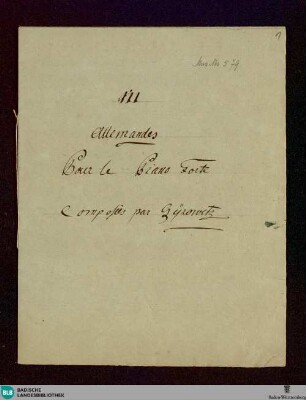 1
Mus. Ms. 279
VII
Allemandes
Pour le Piano Forte
Composées par Gÿrowetz
BLB BADISCHE
LANDESBIBLIOTHEK
Baden-Württemberg